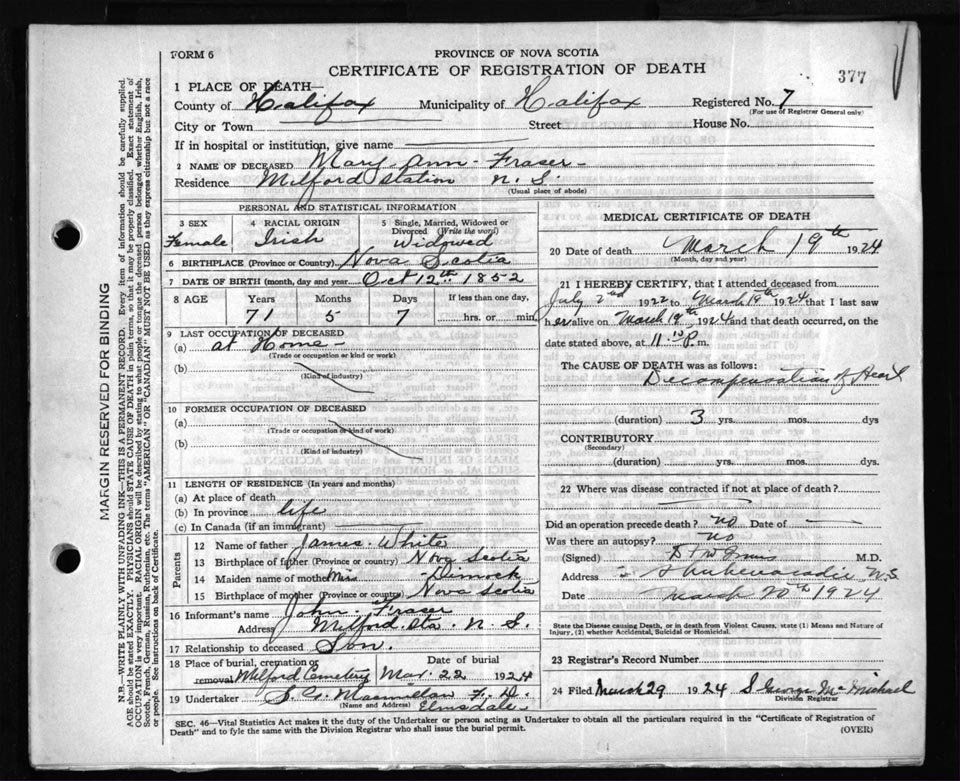 FORM 6
PROVINCE OF NOVA SCOTIA
CERTIFICATE OF REGISTRATION OF DEATH
377
1 PLACE OF DEATH—
County of Halifax Municipality of Halifax Registered No. 7
(For use of Registrar General only)
City or Town Street House No.
If in hospital or institution, give name
2 NAME OF DECEASED Mary Ann Fraser
Residence Milford Station N. S.
(Usual place of abode)
PERSONAL AND STATISTICAL INFORMATION
3 SEX 4 RACIAL ORIGIN 5 Single, Married, Widowed or Divorced (Write the word)
Female Irish Widowed
6 BIRTHPLACE (Province or Country) Nova Scotia
7 DATE OF BIRTH (month, day and year) Oct 12th 1852
8 AGE Years Months Days If less than one day,
71 5 7 hrs. or min.
9 LAST OCCUPATION OF DECEASED
(a) at Home
(Trade or occupation or kind or work)
(b)
(Kind of industry)
10 FORMER OCCUPATION OF DECEASED
(a)
(Trade or occupation or kind of work)
(b)
(Kind of industry)
11 LENGTH OF RESIDENCE (In years and months)
(a) At place of death
(b) In province life
(c) In Canada (if an immigrant)
Parents
12 Name of father James White
13 Birthplace of father (Province or country) Nova Scotia
14 Maiden name of mother Miss Dimock
15 Birthplace of mother (Province or country) Nova Scotia
16 Informant's name John Fraser
Address Milford Sta. N. S.
17 Relationship to deceased Son.
18 Place of burial, cremation or removal Milford Cemetery Date of burial Mar. 22 1924
19 Undertaker Macmillan F. D.
(Name and Address) Elmsdale
MEDICAL CERTIFICATE OF DEATH
20 Date of death March 19th 1924
(Month, day and year)
21 I HEREBY CERTIFY, that I attended deceased from
July 2nd 1922 to March 19th 1924 that I last saw
her alive on March 19th, 1924 and that death occurred, on
date stated above, at 11.10 P.m.
The CAUSE OF DEATH was as follows:
Decompensation of Heart
(duration) 3 yrs. mos. dys
CONTRIBUTORY
(Secondary)
(duration) yrs. mos. dys.
22 Where was disease contracted if not at place of death?
Did an operation precede death? no Date of
Was there an autopsy? no
(Signed) M.D.
Address Shubenacadie N.S.
Date March 20th 1924
State the Disease causing Death, or in death from Violent Causes, state (1) Means and Nature of
Injury, (2) whether Accidental, Suicidal or Homicidal.
23 Registrar's Record Number
24 Filed March 29 1924 S George McMichael
Division Registrar
SEC. 46—Vital Statistics Act makes it the duty of the Undertaker or person acting as Undertaker to obtain all the particulars required in the "Certificate of Registration of
Death" and to fyle the same with the Division Registrar who shall issue the burial permit. (OVER)
MARGIN RESERVED FOR BINDING
N.B.—WRITE PLAINLY WITH UNFADING INK—THIS IS A PERMANENT RECORD. Every item of information should be carefully supplied.
AGE should be stated EXACTLY. PHYSICIANS should STATE CAUSE OF DEATH in plain terms, so that it may be properly classified. Exact statement of
OCCUPATION is very important. RACIAL ORIGIN will be described by stating to what people or tongue the deceased person belonged whether English, Irish,
Scotch, French, German, Russian, Ruthenian, etc. The terms "AMERICAN" OR "CANADIAN" MUST NOT BE USED as they express citizenship but not a race
or people. See instructions on back of Certificate.